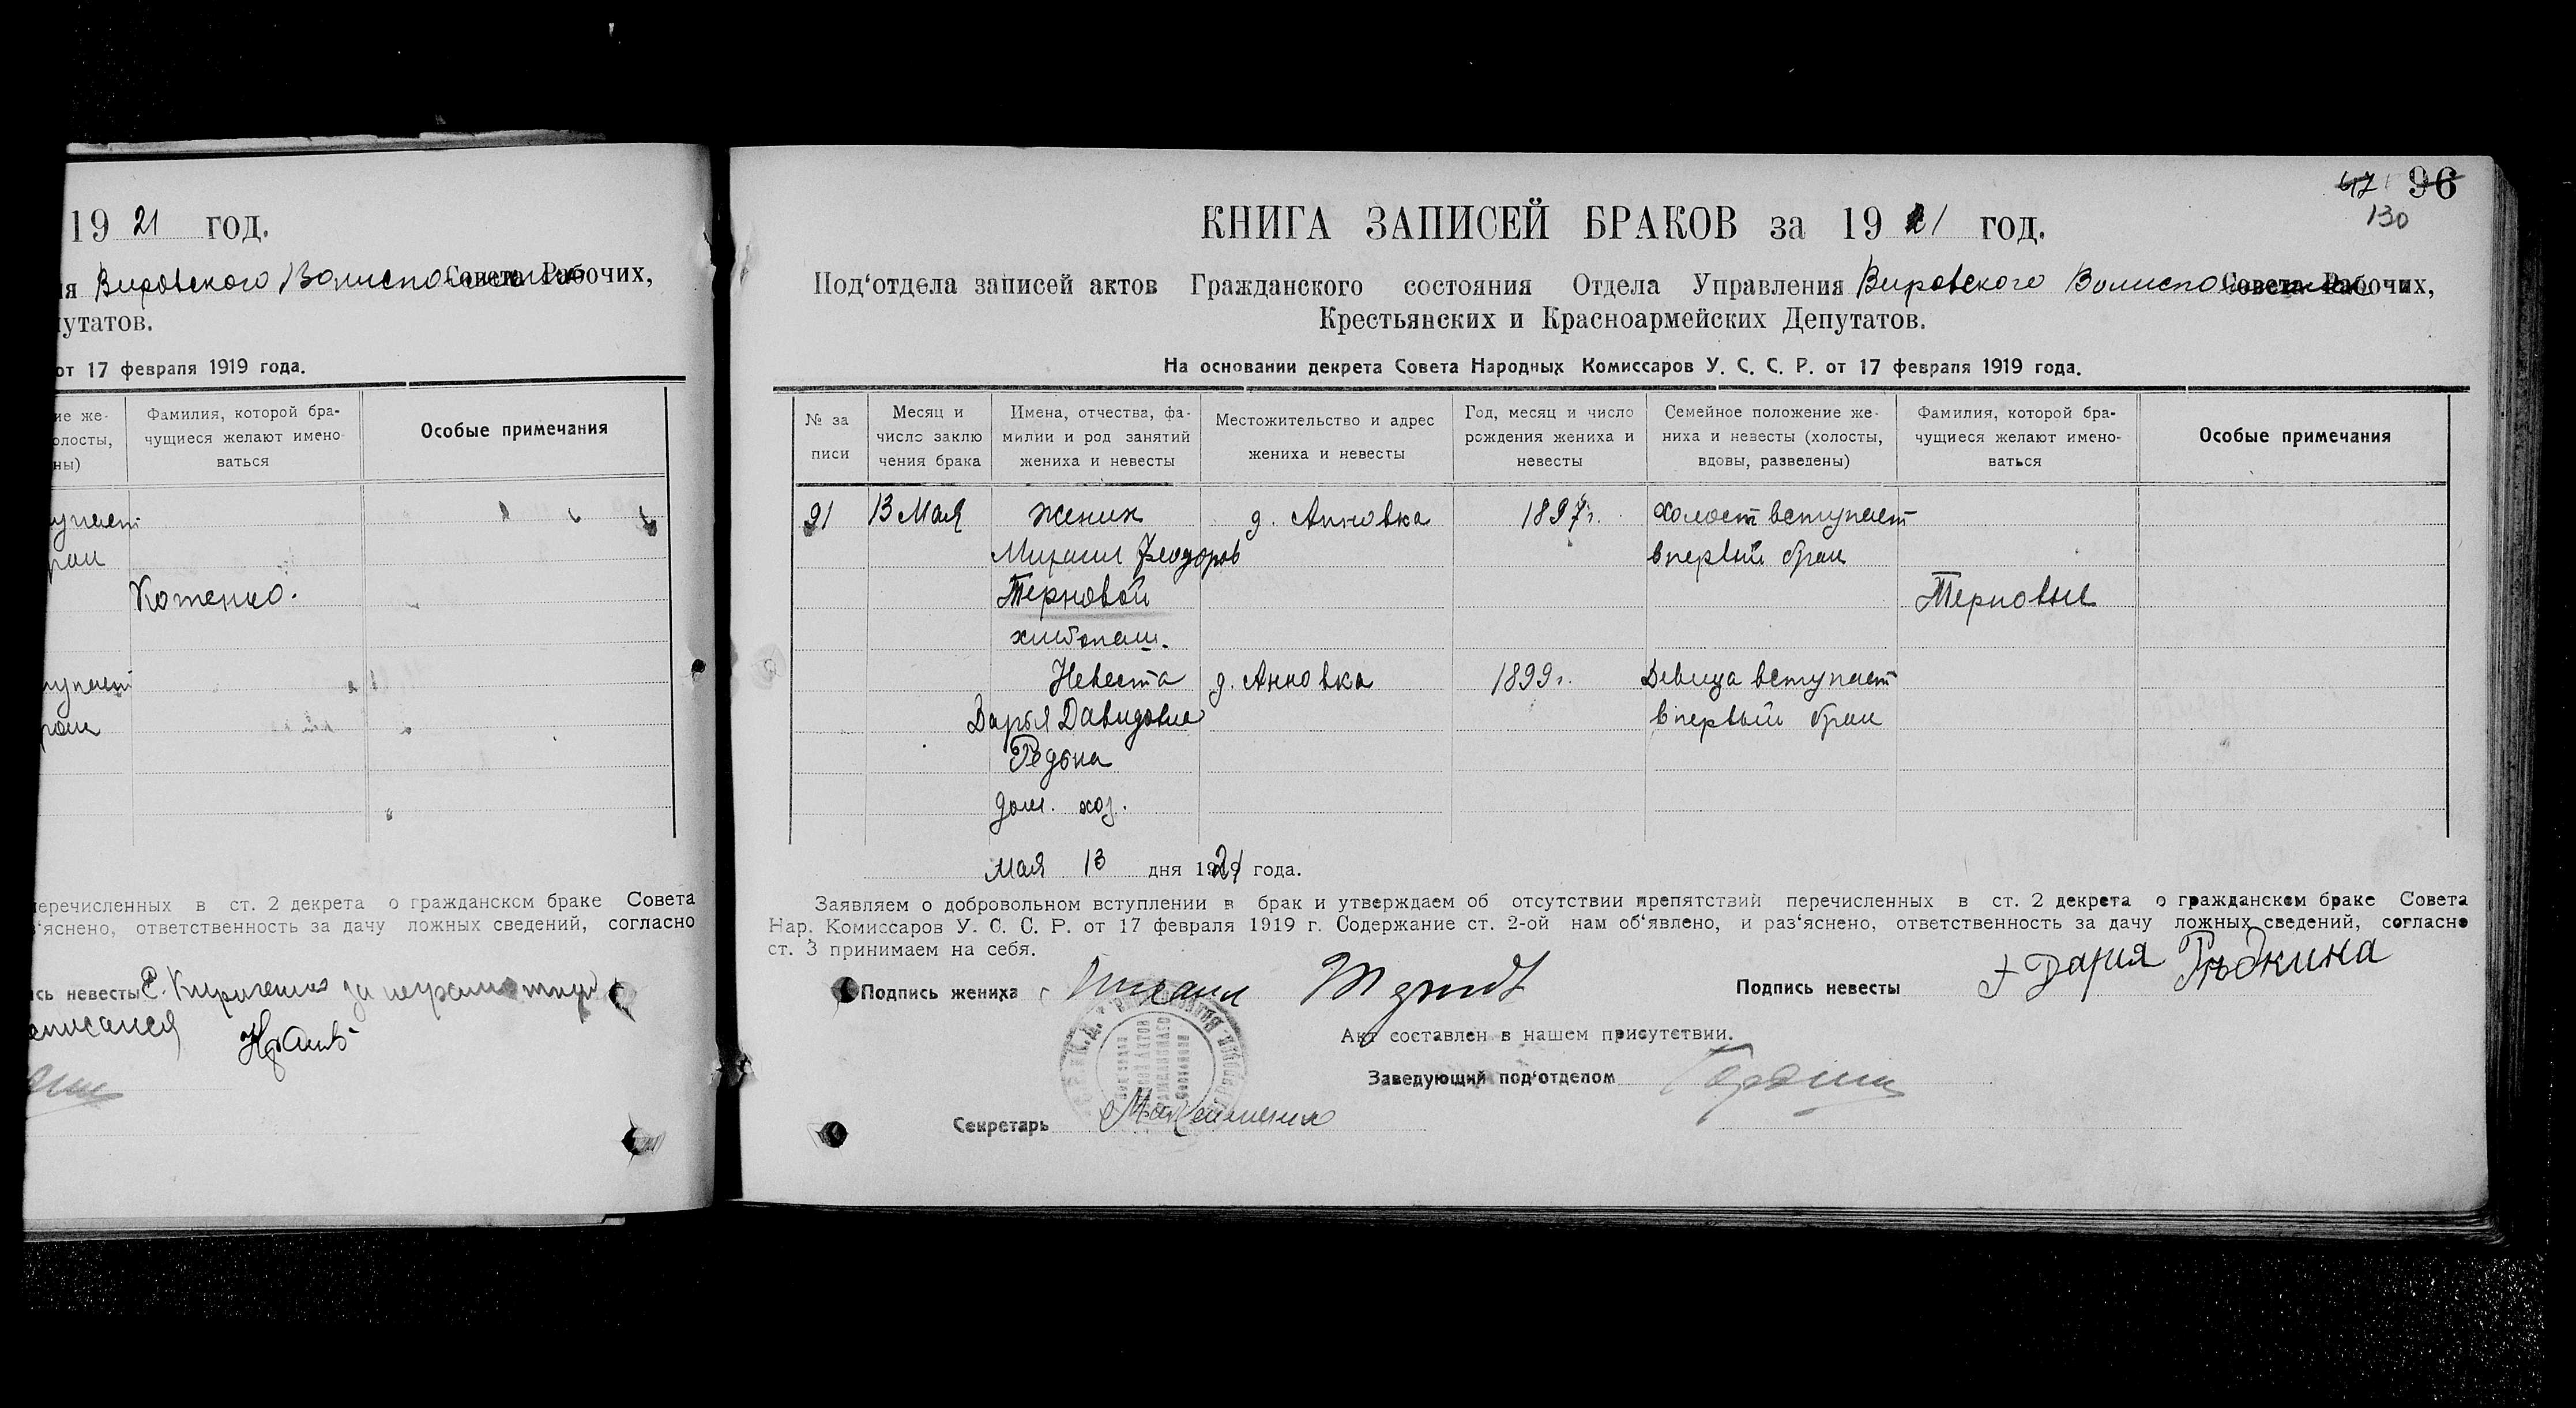 19 21 год.
Вировского Волисполкома Совета Рабочих,
путатов.
от 17 февраля 1919 года.
ие же-
олосты,
ны)
Фамилия, которой бра-
чущиеся желают имено-
ваться
Особые примечания
тупает
рак
Котенко.
тупает
рак
перечисленных в ст. 2 декрета о гражданском браке Совета
з‘яснено, ответственность за дачу ложных сведений, согласно
ись невесты Е. Кириченко за неграмотную
расписался
47 96
130
КНИГА ЗАПИСЕЙ БРАКОВ за 1921 год.
Под‘отдела записей актов Гражданского состояния Отдела Управления Вировского Волисполкома Совета Рабочих,
Крестьянских и Красноармейских Депутатов.
На основании декрета Совета Народных Комиссаров У. С. С. Р. от 17 февраля 1919 года.
№ за
писи
Месяц и
число заклю
чения брака
Имена, отчества, фа-
милии и род занятий
жениха и невесты
Местожительство и адрес
жениха и невесты
Год, месяц и число
рождения жениха и
невесты
Семейное положение же-
ниха и невесты (холосты,
вдовы, разведены)
Фамилия, которой бра-
чущиеся желают имено-
ваться
Особые примечания
91 13 Мая жених д. Анновка 1897г. Холост вступает
Михаил Феодоров в первый брак
Терновой Терновые
хлебопаш.
Невеста д. Анновка 1899г. Девица вступает
Дарья Давидовна в первый брак
Редька
дом. хоз.
Мая 13 дня 1921 года.
Заявляем о добровольном вступлении в брак и утверждаем об отсутствии препятствий перечисленных в ст. 2 декрета о гражданском браке Совета
Нар. Комиссаров У. С. С. Р. от 17 февраля 1919 г. Содержание ст. 2-ой нам об‘явлено, и раз‘яснено, ответственность за дачу ложных сведений, согласно
ст. 3 принимаем на себя.
Подпись жениха Михаил Подпись невесты Дария Редкина
Акт составлен в нашем присутствии.
Заведующий под‘отделом
Секретарь